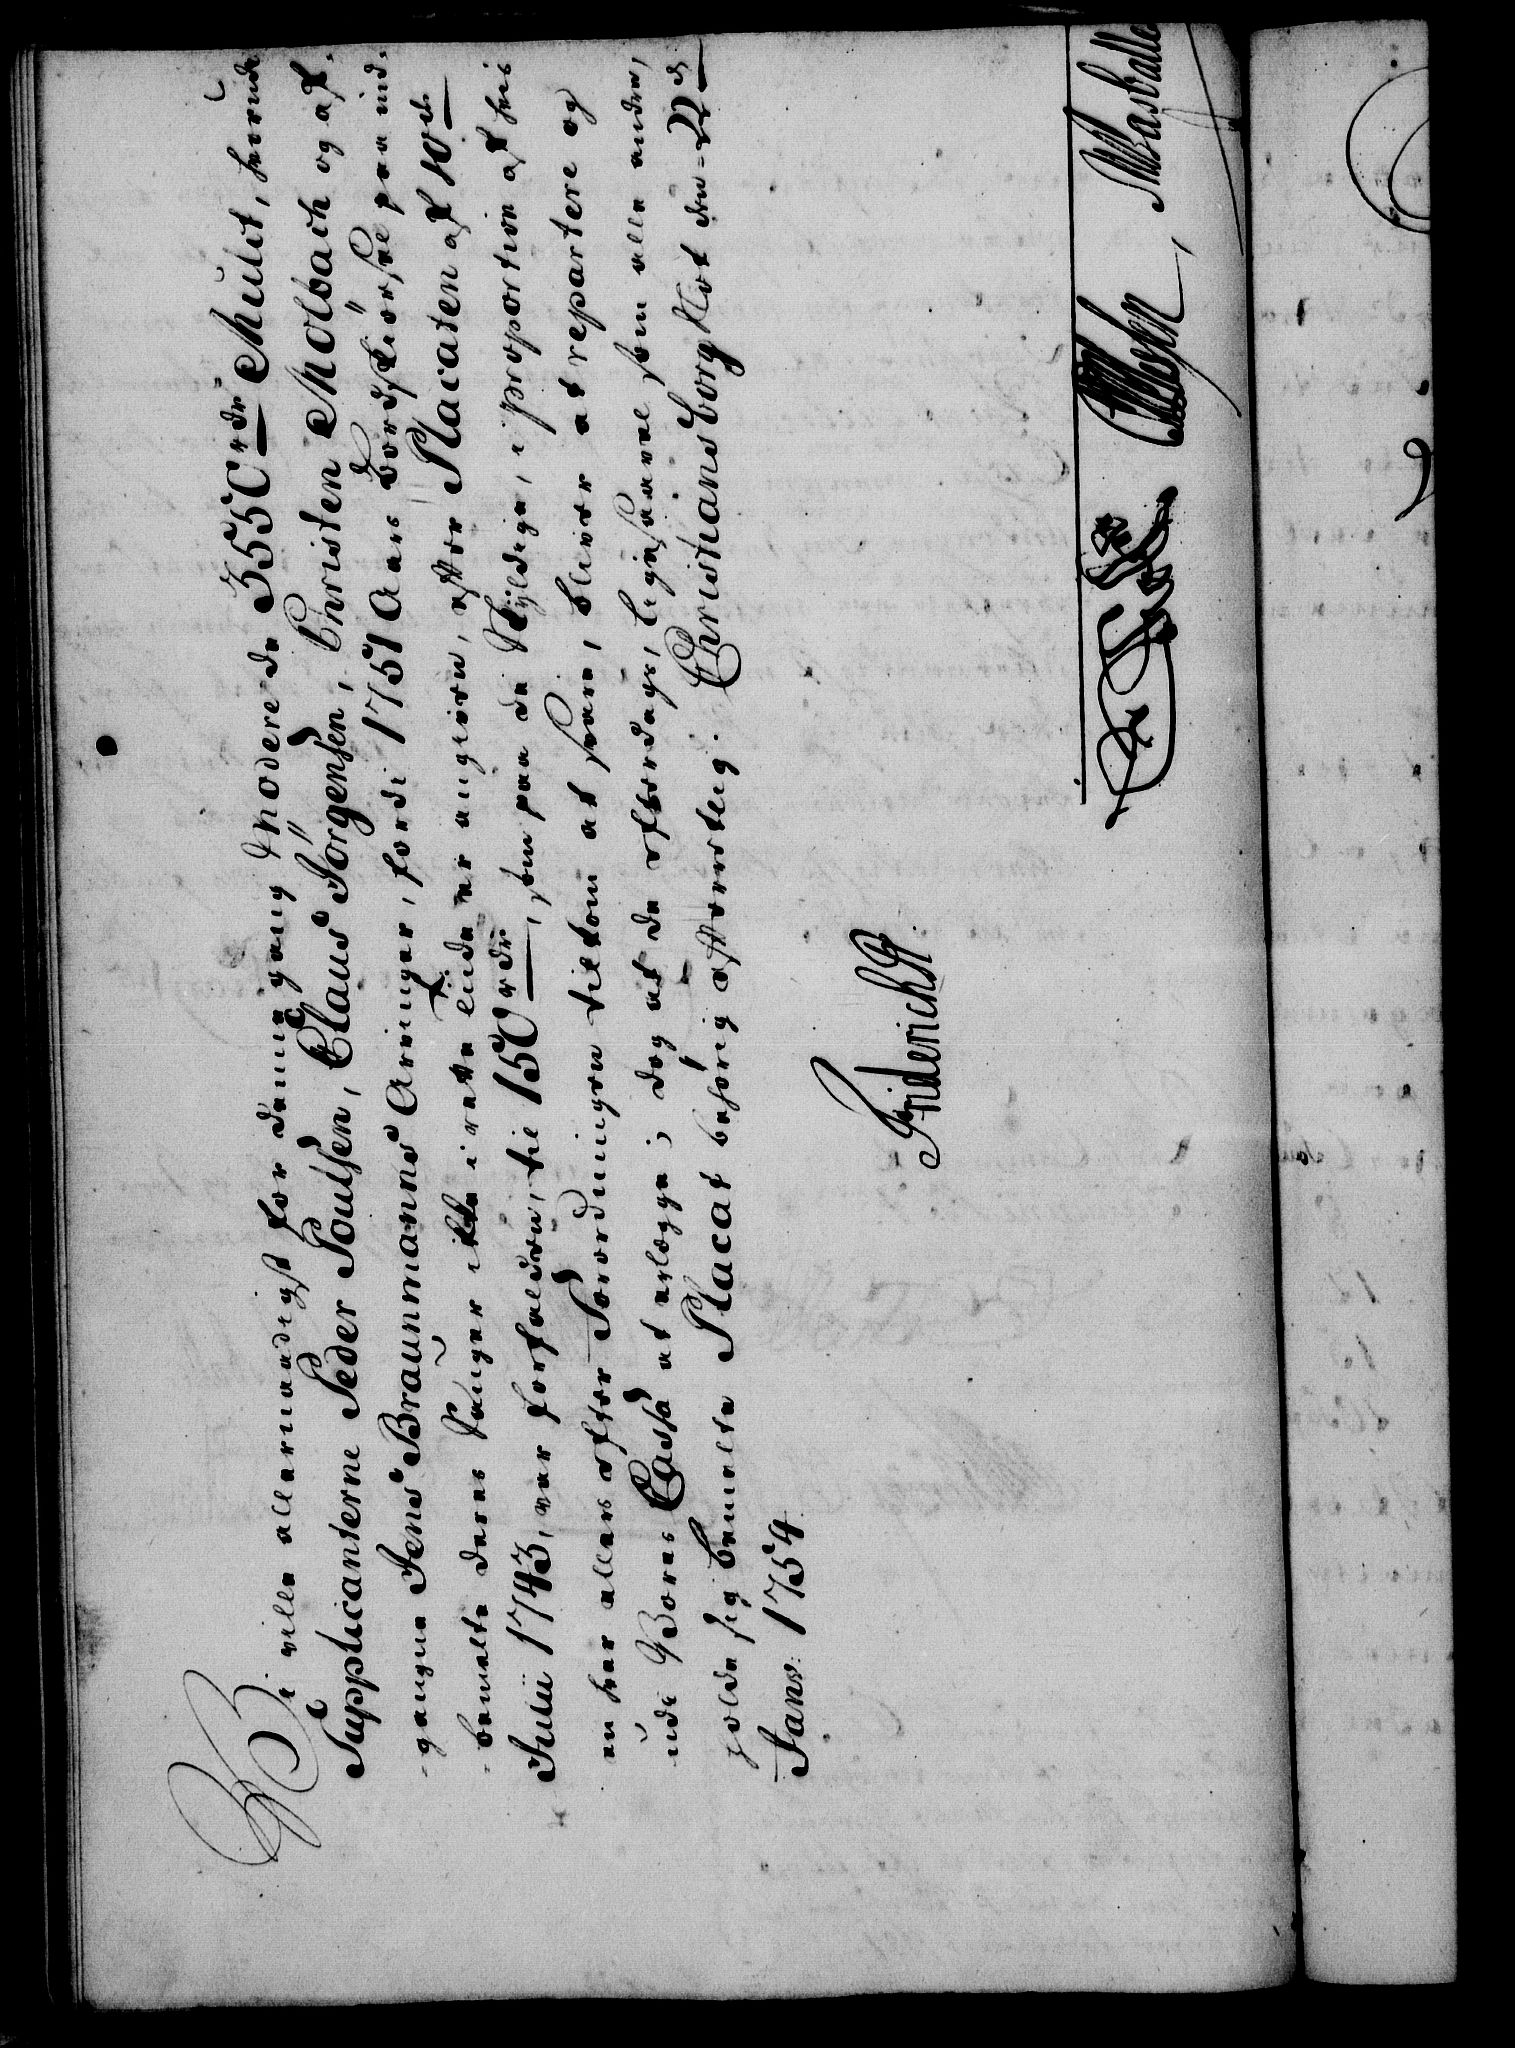 Vi ville allernaadigst for denne gang Moderede 3550 rdr Mulct, hvorudi
Supplicanterne Peder Poulsen, Claus Jörgensen, Christen Molbach og afk.
-gangne Jens Braunmanns Arvinger, fordi 1751 Aars Bordskiörsel paa ind-
-bemelte deres Sauger ikke i rette tiide er angiven, efter Placaten af 10de
Julii 1743, var forfalden, til 150 rdr, som paa de skyldige, i proportion af hvis
en hver ellers efter Forordningen tilkom at svare, bliver at repartere og
udi Vores Cassa at erlægge; dog at de efterdags, ligesaavel som alle andre,
holde sig bemelte Placat behörig efterrettelig. Christiansborg Slot den 22de
Janv: 1754.
Friderich R